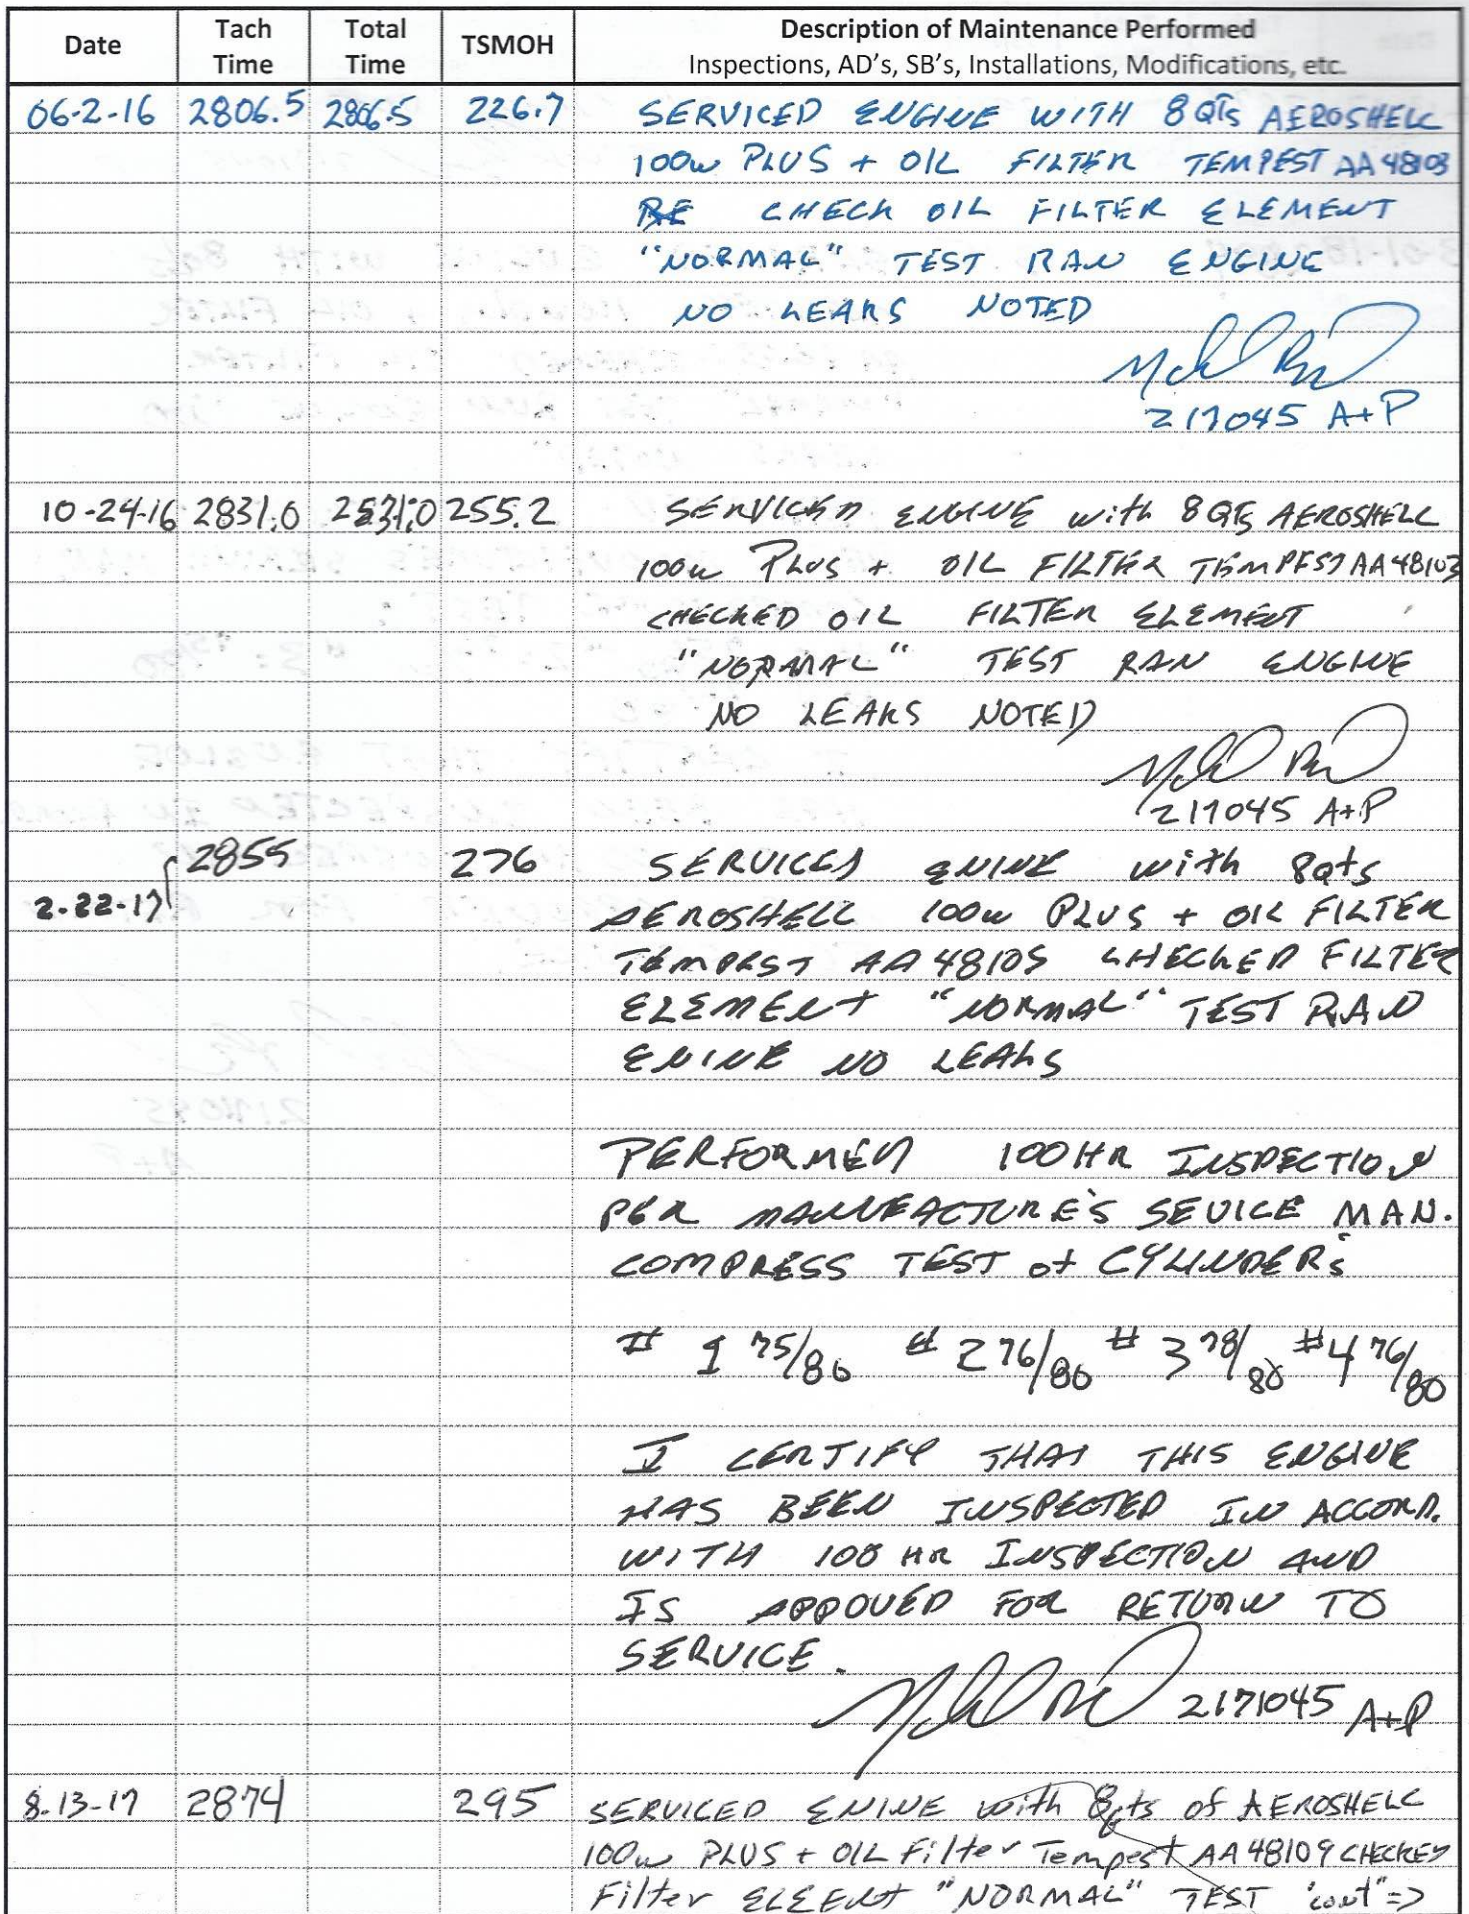 Date Tach Time Total Time TSMOH Description of Maintenance Performed
Inspections, AD's, SB's, Installations, Modifications, etc.
06-2-16 2806.5 2806.5 226.7 SERVICED ENGINE WITH 8 QTS AEROSHELL
100W PLUS + OIL FILTER TEMPEST AA 48103
CHECK OIL FILTER ELEMENT
"NORMAL" TEST RAN ENGINE
NO LEAKS NOTED
217045 A+P
10-24-16 2831.0 2831.0 255.2 SERVICED ENGINE with 8 QTS AEROSHELL
100W PLUS + OIL FILTER TEMPEST AA48103
CHECKED OIL FILTER ELEMENT
"NORMAL" TEST RAN ENGINE
NO LEAKS NOTED
217045 A+P
2855 276 SERVICED ENINE with 8qts
2-22-17 AEROSHELL 100W PLUS + OIL FILTER
TEMPEST AA 48105 CHECKED FILTER
ELEMENT "NORMAL" TEST RAN
ENINE NO LEAKS
PERFORMED 100 HR INSPECTION
PER MANUFACTURE'S SEVICE MAN.
COMPRESS TEST of CYLINDER'S
# 1 75/80 # 2 76/80 # 3 78/80 #4 76/80
I CERTIFY THAT THIS ENGINE
HAS BEEN INSPECTED IN ACCORD.
WITH 100 HR INSPECTION AND
IS APPOVED FOR RETURN TO
SERVICE.
2171045 A+P
8-13-17 2874 295 SERVICED ENINE with 8qts of AEROSHELL
100W PLUS + OIL Filter Tempest AA 48109 CHECKED
Filter ELEENT "NORMAL" TEST "cont" =>